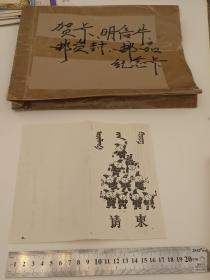 贺卡、明信片
邮资封、邮品
纪念卡
请柬
0 1 2 3 4 5 6 7 8 9 10 11 12 13 14 15 16 17 18 19 20